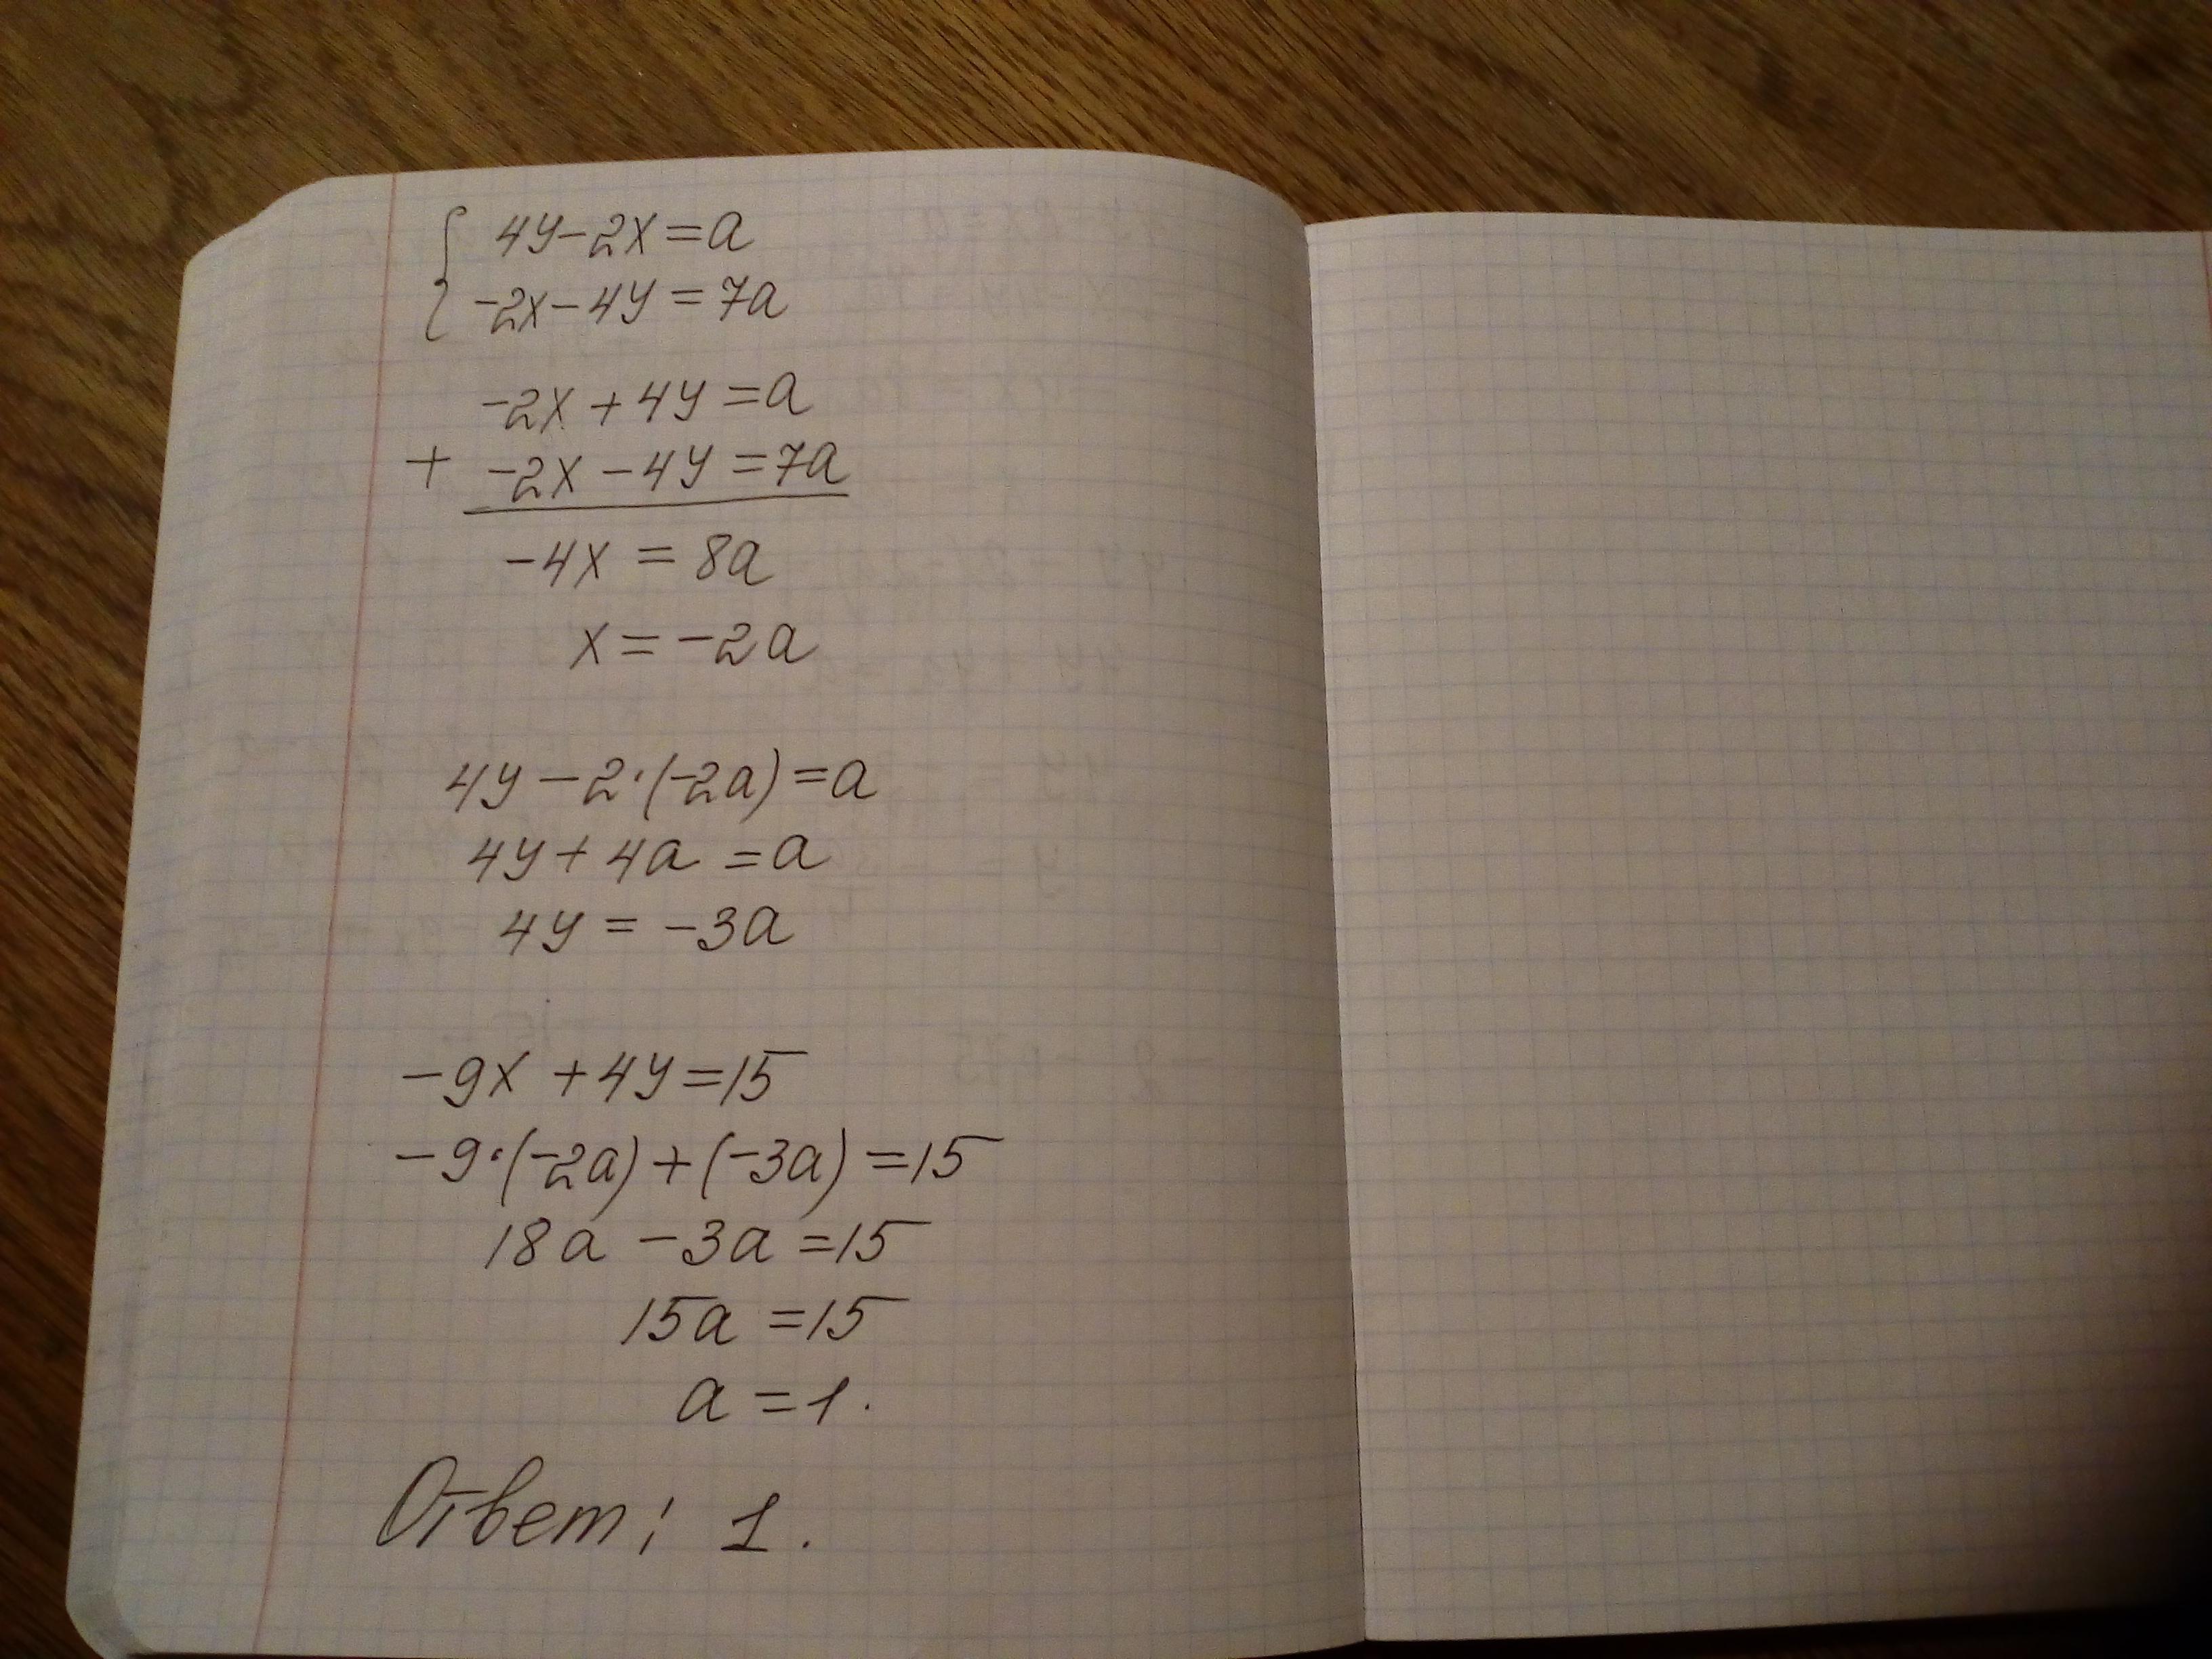 { 4y-2x=a
-2x-4y=7a
-2x+4y=a
+ -2x-4y=7a
-4x=8a
x=-2a
4y-2·(-2a)=a
4y+4a=a
4y=-3a
-9x+4y=15
-9·(-2a)+(-3a)=15
18a-3a=15
15a=15
a=1.
Ответ: 1.